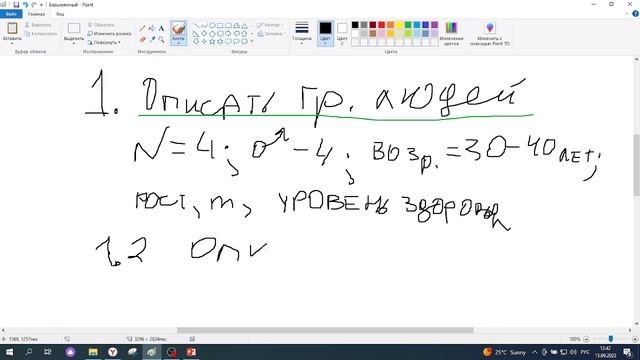 Безымянный - Paint
Файл Главная Вид
Вставить Вырезать Копировать
Выделить Обрезать Изменить размер Повернуть
Кисти
Контур Заливка
Толщина Цвет 1 Цвет 2
Изменение цветов Изменить с помощью Paint 3D
Буфер обмена Изображение Инструменты Фигуры Цвета
1. Описать гр. людей
N = 4; ♂ - 4; возр. = 30-40 лет;
рост, m, уровень здоровья
1.2 Опи
1569, 1257пкс 3296 × 2824пкс 100%
25°C Sunny РУС 12:42
15.09.2023